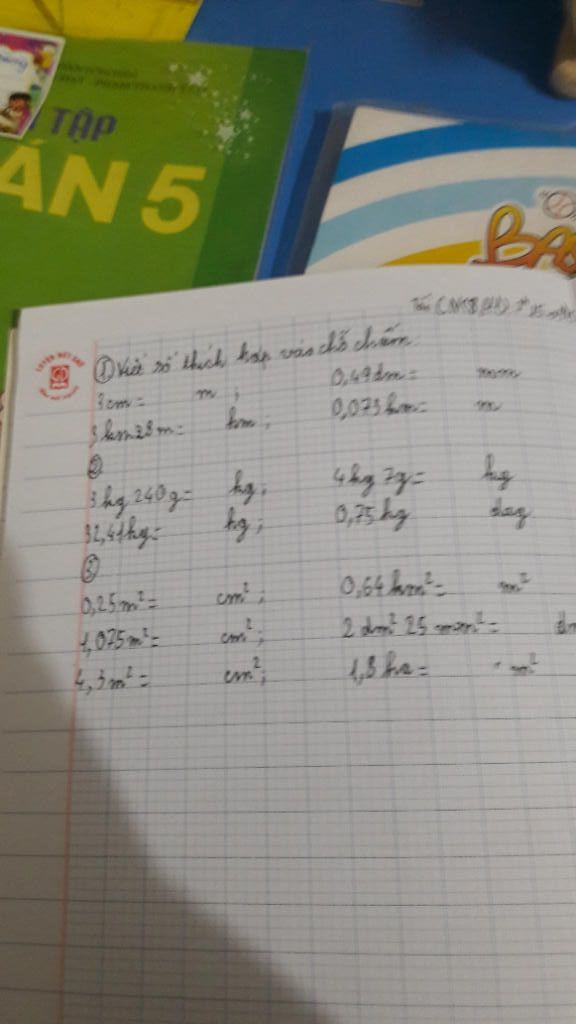 TẬP
ÁN 5
BA
LUYỆN VIẾT CHỮ
① Viết số thích hợp vào chỗ chấm.
3cm = m ; 0,49dm = mm
3km28m = km ; 0,073km = m
②
3kg 240g = kg ; 4kg 7g = kg
32,41kg = kg ; 0,75kg dag
③
0,25m² = cm² ; 0,64km² = m²
1,075m² = cm² ; 2 dm² 25 mm² =
4,3m² = cm² ; 1,3ha = m²